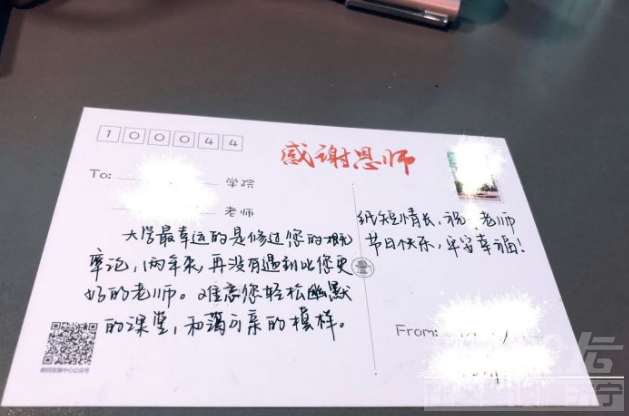 100044
感谢恩师
To:
学院
老师
大学最幸运的是修过您的概
率论，两年来，再没有遇到比您更
好的老师。难忘您轻松幽默
的课堂，和蔼可亲的模样。
纸短情长，祝 老师
节日快乐，平安幸福！
From: